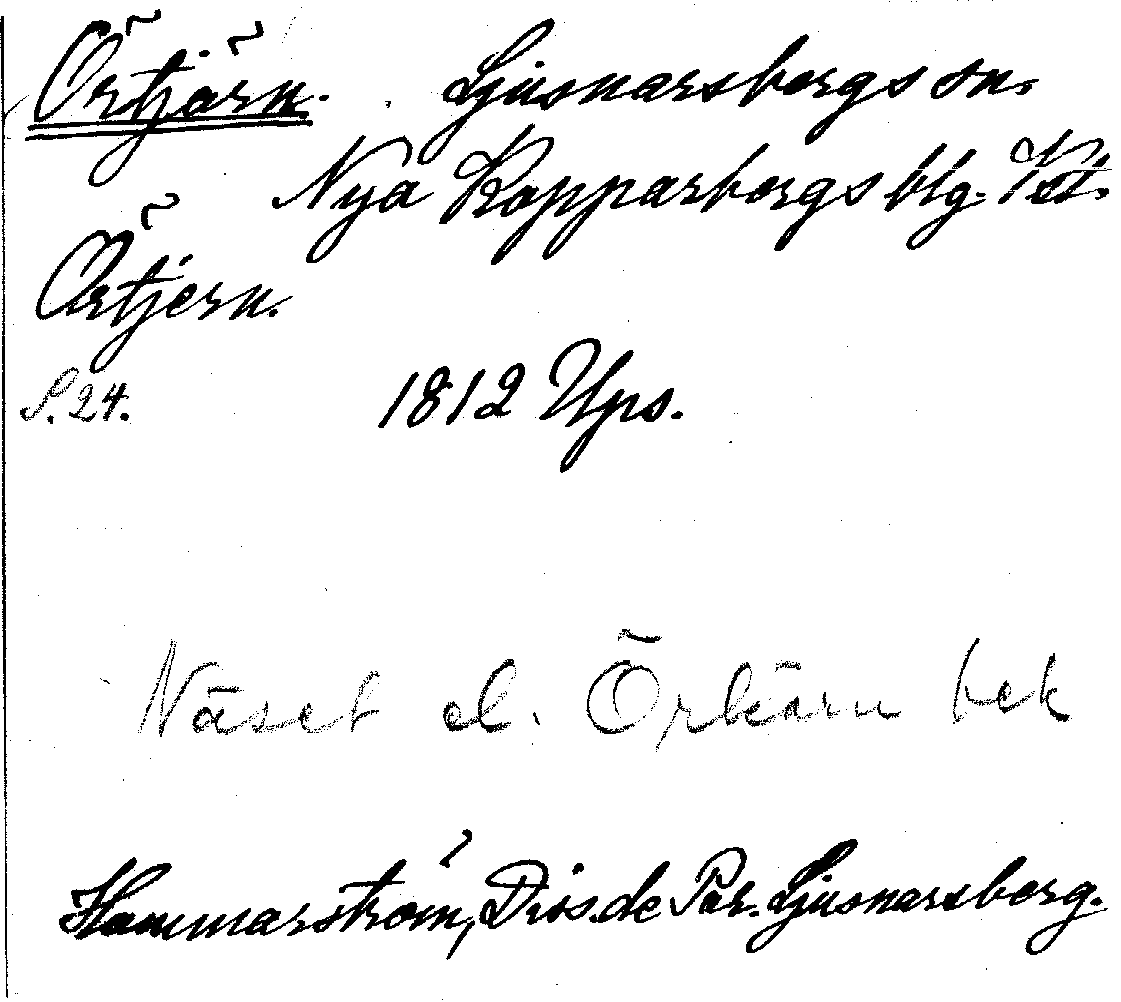 Örtjärn. Ljusnarsbergs sn.
Nya Kopparbergs blg. Vst.
Örtjern.
S. 24. 1812 Ups.
Näset el. Örkärn bek
Hammarström, Diss. de Par. Ljusnarsberg.